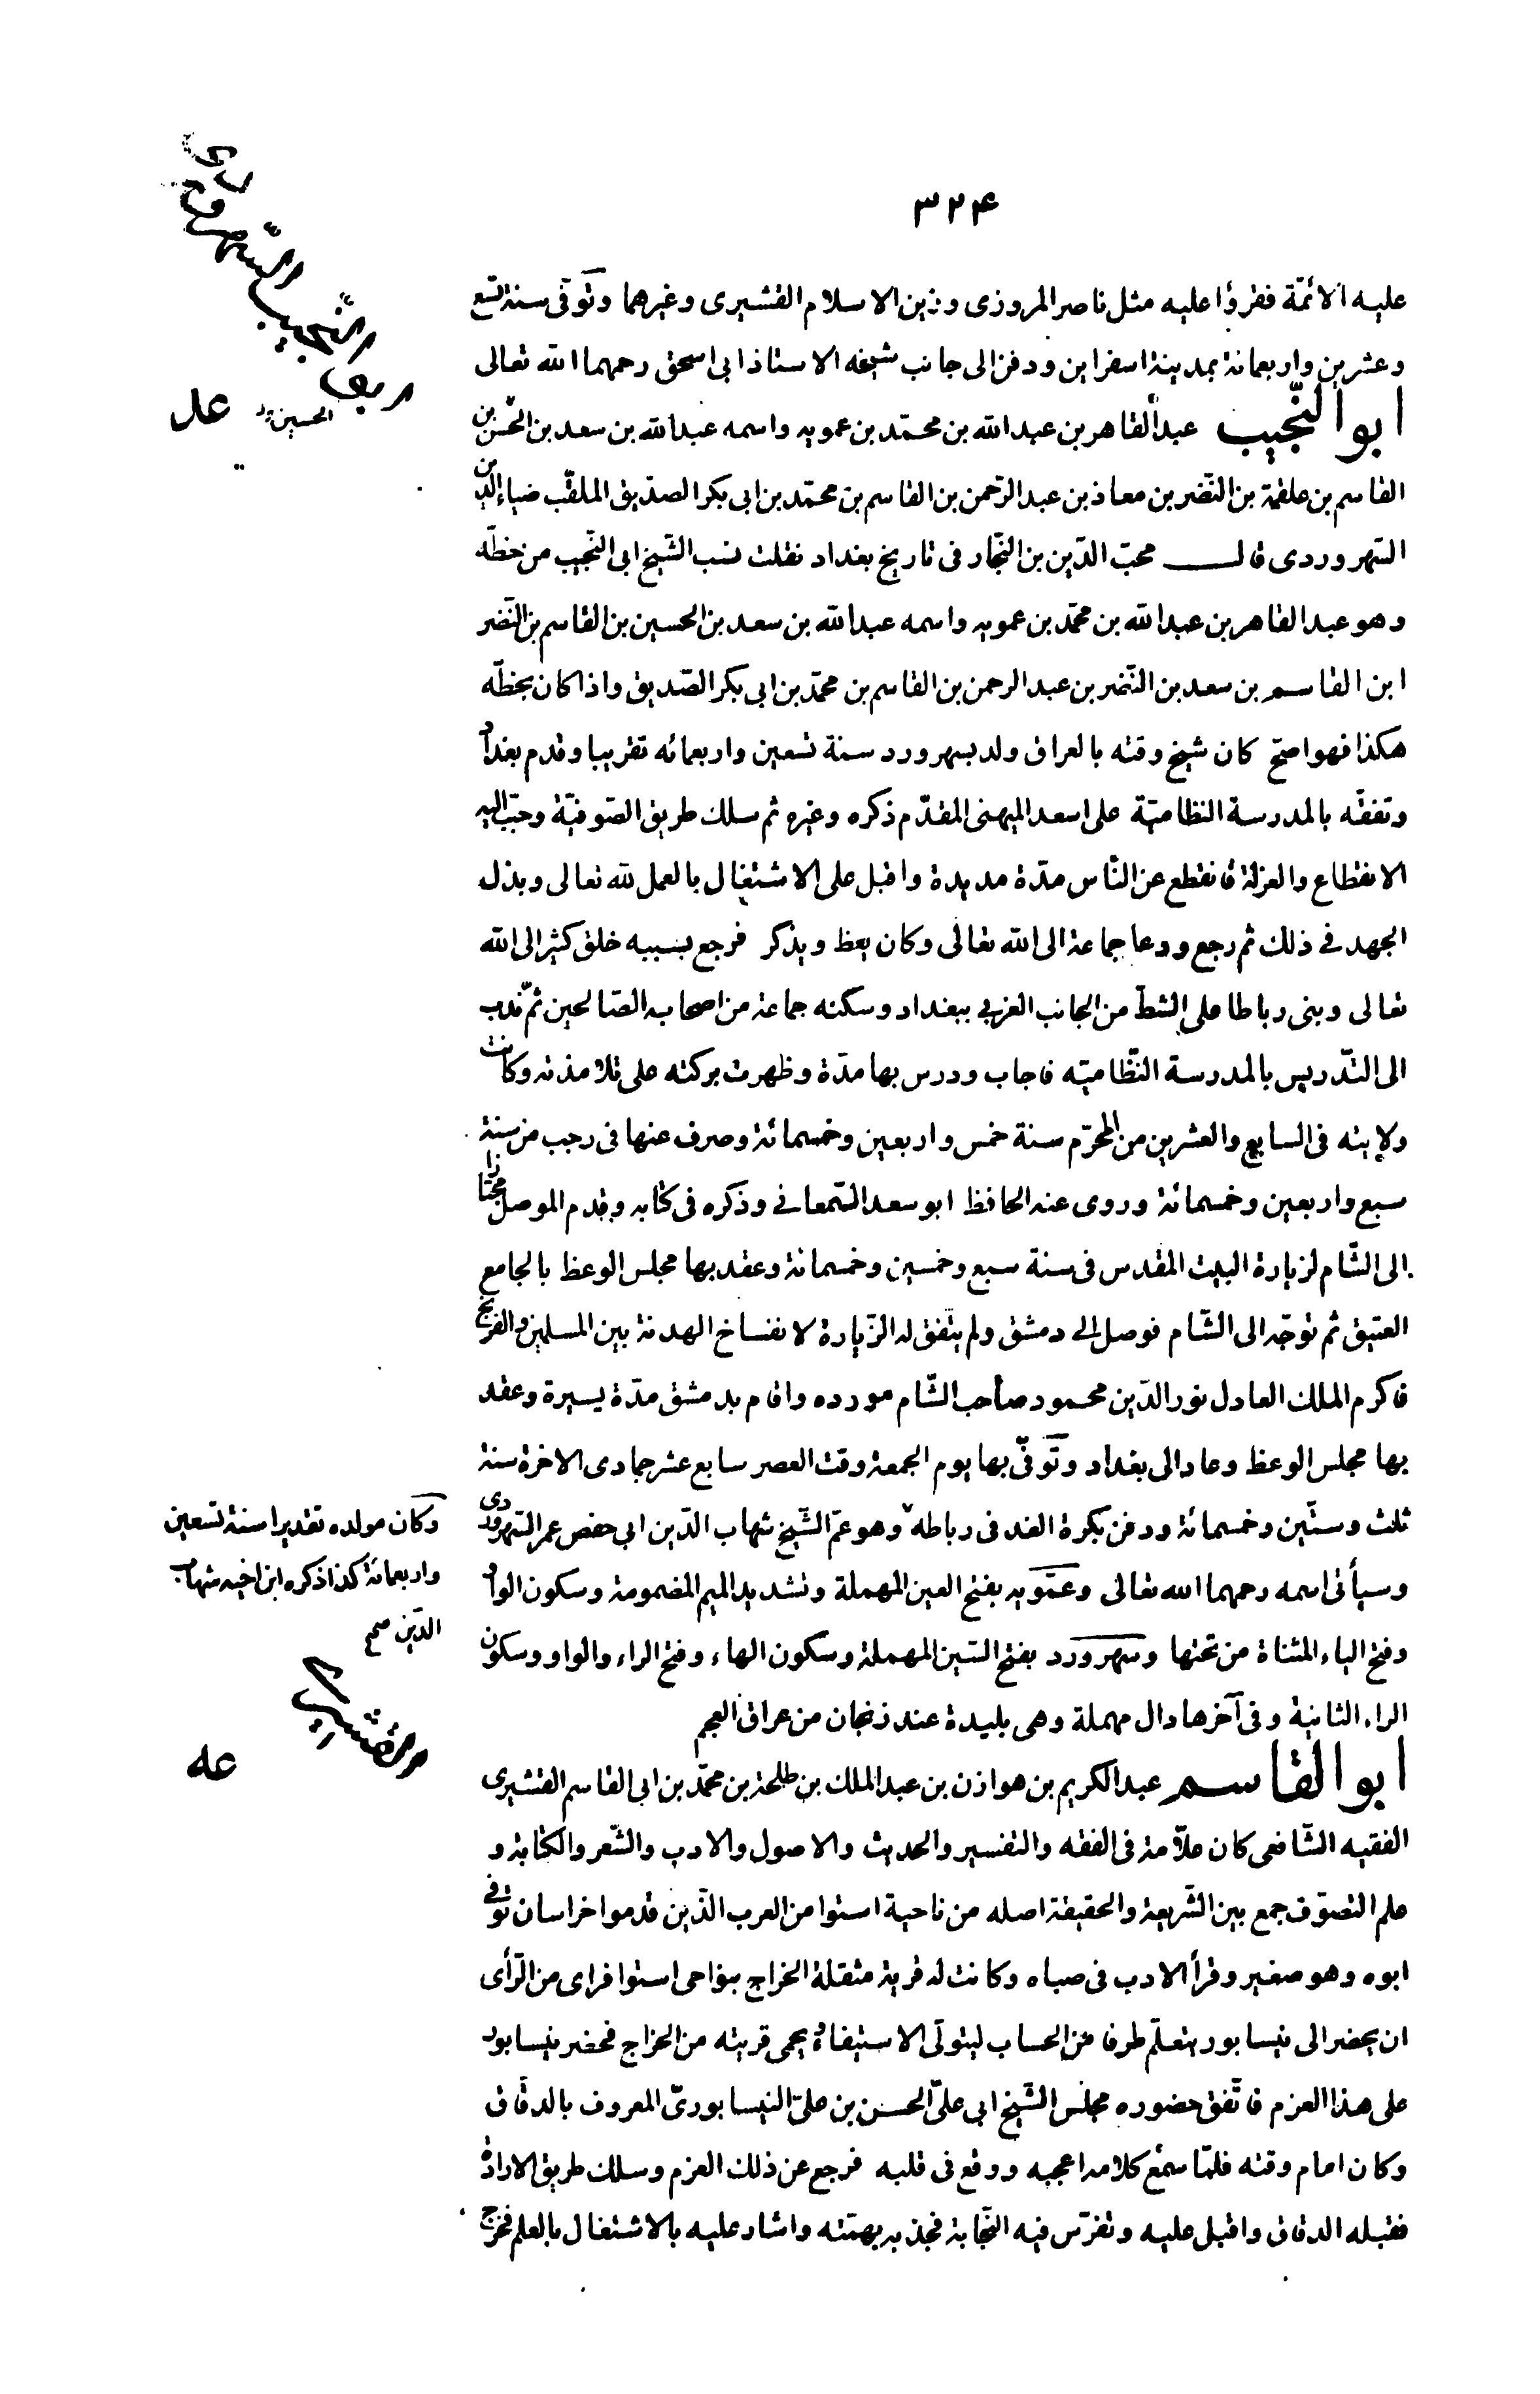 ۳۲۴
عليه الائمّة فقرؤا عليه مثل ناصر المروزى وزين الاسلام القشيرى وغيرهما وتوفى سنة تسع
وعشرين واربعمائة بمدينة اسفراين ودفن الى جانب شيخه الاستاذ ابى اسحق رحمهما الله تعالى
ابو النّجيب عبد القاهر بن عبد الله بن محمّد بن عمويه واسمه عبد الله بن سعد بن الحسن بن
القاسم بن علقمة بن النّضر بن معاذ بن عبد الرّحمن بن القاسم بن محمّد بن ابى بكر الصدّيق الملقّب ضياء الدين
السّهروردى قال محبّ الدّين بن النجّار فى تاريخ بغداد نقلت نسب الشّيخ ابى النّجيب من خطّه
وهو عبد القاهر بن عبد الله بن محمّد بن عمويه واسمه عبد الله بن سعد بن الحسين بن القاسم بن النّضر
ابن القاسم بن سعد بن النّضر بن عبد الرحمن بن القاسم بن محمّد بن ابى بكر الصّديق واذا كان بخطّه
هكذا فهو اصحّ كان شيخ وقته بالعراق ولد بسهرورد سنة تسعين واربعمائه تقريبا وقدم بغداد
وتفقّه بالمدرسة النظاميّة على اسعد الميهنى المقدّم ذكره وغيره ثم سلك طريق الصّوفيّة وحبّب اليه
الانقطاع والعزلة فانقطع عن النّاس مدّة مديدة واقبل على الاشتغال بالعمل لله تعالى وبذل
الجهد فى ذلك ثم رجع ودعا جماعة الى الله تعالى وكان يعظ ويذكر فرجع بسببه خلق كثير الى الله
تعالى وبنى رباطا على الشطّ من الجانب الغربي ببغداد وسكنه جماعة من اصحابه الصّالحين ثمّ ندب
الى التّدريس بالمدرسة النّظاميّه فاجاب ودرس بها مدّة وظهرت بركته على تلامذته وكانت
ولايته فى السابع والعشرين من المحرّم سنة خمس واربعين وخمسمائة وصرف عنها فى رجب من سنة
سبع واربعين وخمسمائة وروى عنه الحافظ ابو سعد السّمعانى وذكره فى كتابه وقدم الموصل مجتازا
الى الشّام لزيارة البيت المقدس فى سنة سبع وخمسين وخمسمائة وعقد بها مجلس الوعظ بالجامع
العتيق ثم توجّه الى الشّام فوصل الى دمشق ولم يتّفق له الزّيارة لانفساخ الهدنة بين المسلمين والفرنج
فاكرم الملك العادل نور الدّين محمود صاحب الشّام مورده واقام بدمشق مدّة يسيرة وعقد
بها مجلس الوعظ وعاد الى بغداد وتوفّى بها يوم الجمعة وقت العصر سابع عشر جمادى الاخرة سنة
ثلث وستّين وخمسمائة ودفن بكرة الغد فى رباطه وهو عمّ الشّيخ شهاب الدّين ابى حفص عمر السّهروردى
وسيأتى اسمه رحمهما الله تعالى وعمّويه بفتح العين المهملة وتشديد الميم المضمومة وسكون الواو
وفتح الياء المثناة من تحتها وسهرورد بفتح السّين المهملة وسكون الهاء وفتح الراء والواو وسكون
الراء الثانية وفى آخرها دال مهملة وهى بليدة عند زنجان من عراق العجم
ابو القاسم عبد الكريم بن هوازن بن عبد الملك بن طلحة بن محمّد بن ابى القاسم القشيرى
الفقيه الشّافعى كان علّامة فى الفقه والتفسير والحديث والاصول والادب والشّعر والكتابة و
علم التصوّف جمع بين الشّريعة والحقيقة اصله من ناحية استوا من العرب الّذين قدموا خراسان توفى
ابوه وهو صغير وقرأ الادب فى صباه وكانت له قرية مثقلة الخراج بنواحى استوا فراى من الرّأى
ان يحضر الى نيسابور يتعلّم طرفا من الحساب ليتولّى الاستيفاء ويحمى قريته من الخراج فحضر نيسابور
على هذا العزم فاتّفق حضوره مجلس الشّيخ ابى علىّ الحسن بن علىّ النيسابورىّ المعروف بالدقّاق
وكان امام وقته فلمّا سمع كلامه اعجبه ووقع فى قلبه فرجع عن ذلك العزم وسلك طريق الارادة
فقبله الدقاق واقبل عليه وتفرّس فيه النّجابة فجذبه بهمّته واشار عليه بالاشتغال بالعلم فخرج
النّجيب السّهروردى
الحسين
وكان مولده تقديرا سنة تسعين
واربعمائة كذا ذكره ابن اخيه شهاب
الدّين صح
القشيرى